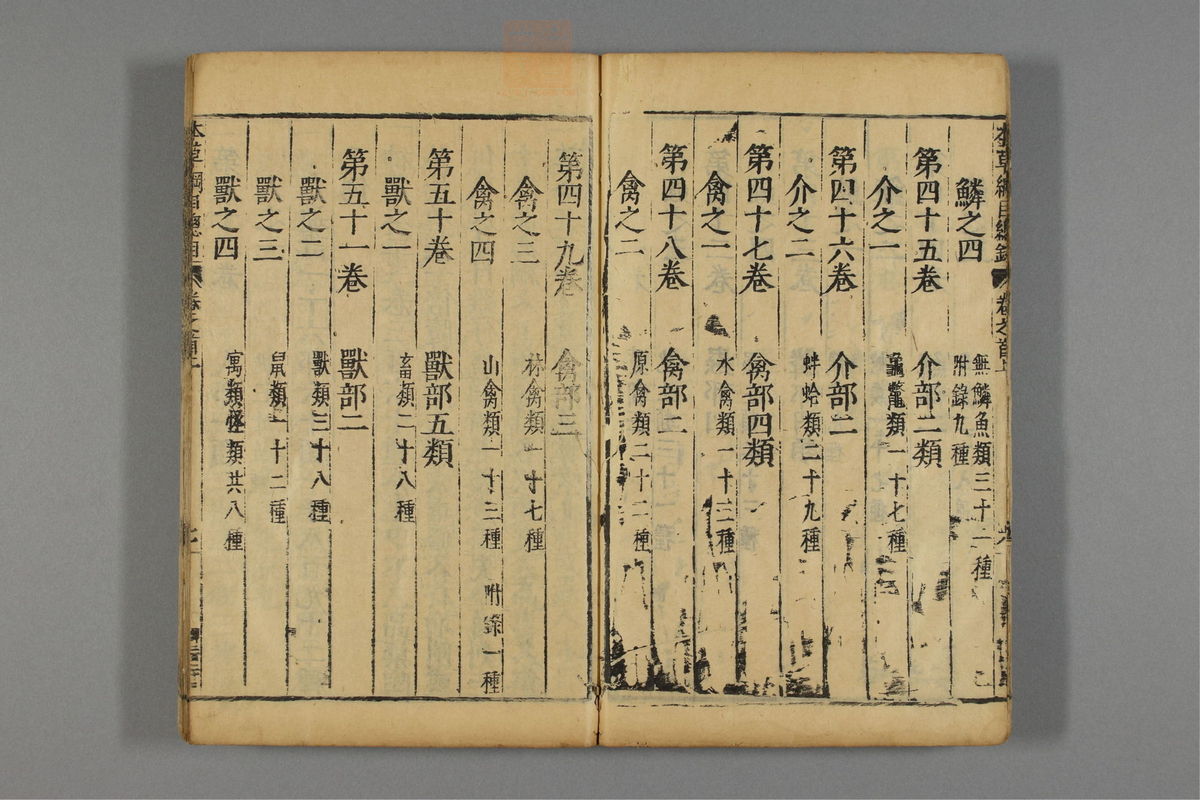 鱗之四 無鱗魚類三十一種
附錄九種
第四十五卷 介部二類
介之一 龜鼈類一十七種
第四十六卷 介部二
介之二 蚌蛤類二十九種
第四十七卷 禽部四類
禽之一 水禽類二十三種
第四十八卷 禽部二
禽之二 原禽類二十二種
第四十九卷 禽部三
禽之三 林禽類一十七種
禽之四 山禽類一十三種 附錄一種
第五十卷 獸部五類
獸之一 畜類二十八種
第五十一卷 獸部二
獸之二 獸類三十八種
獸之三 鼠類一十二種
獸之四 寓類怪類共八種